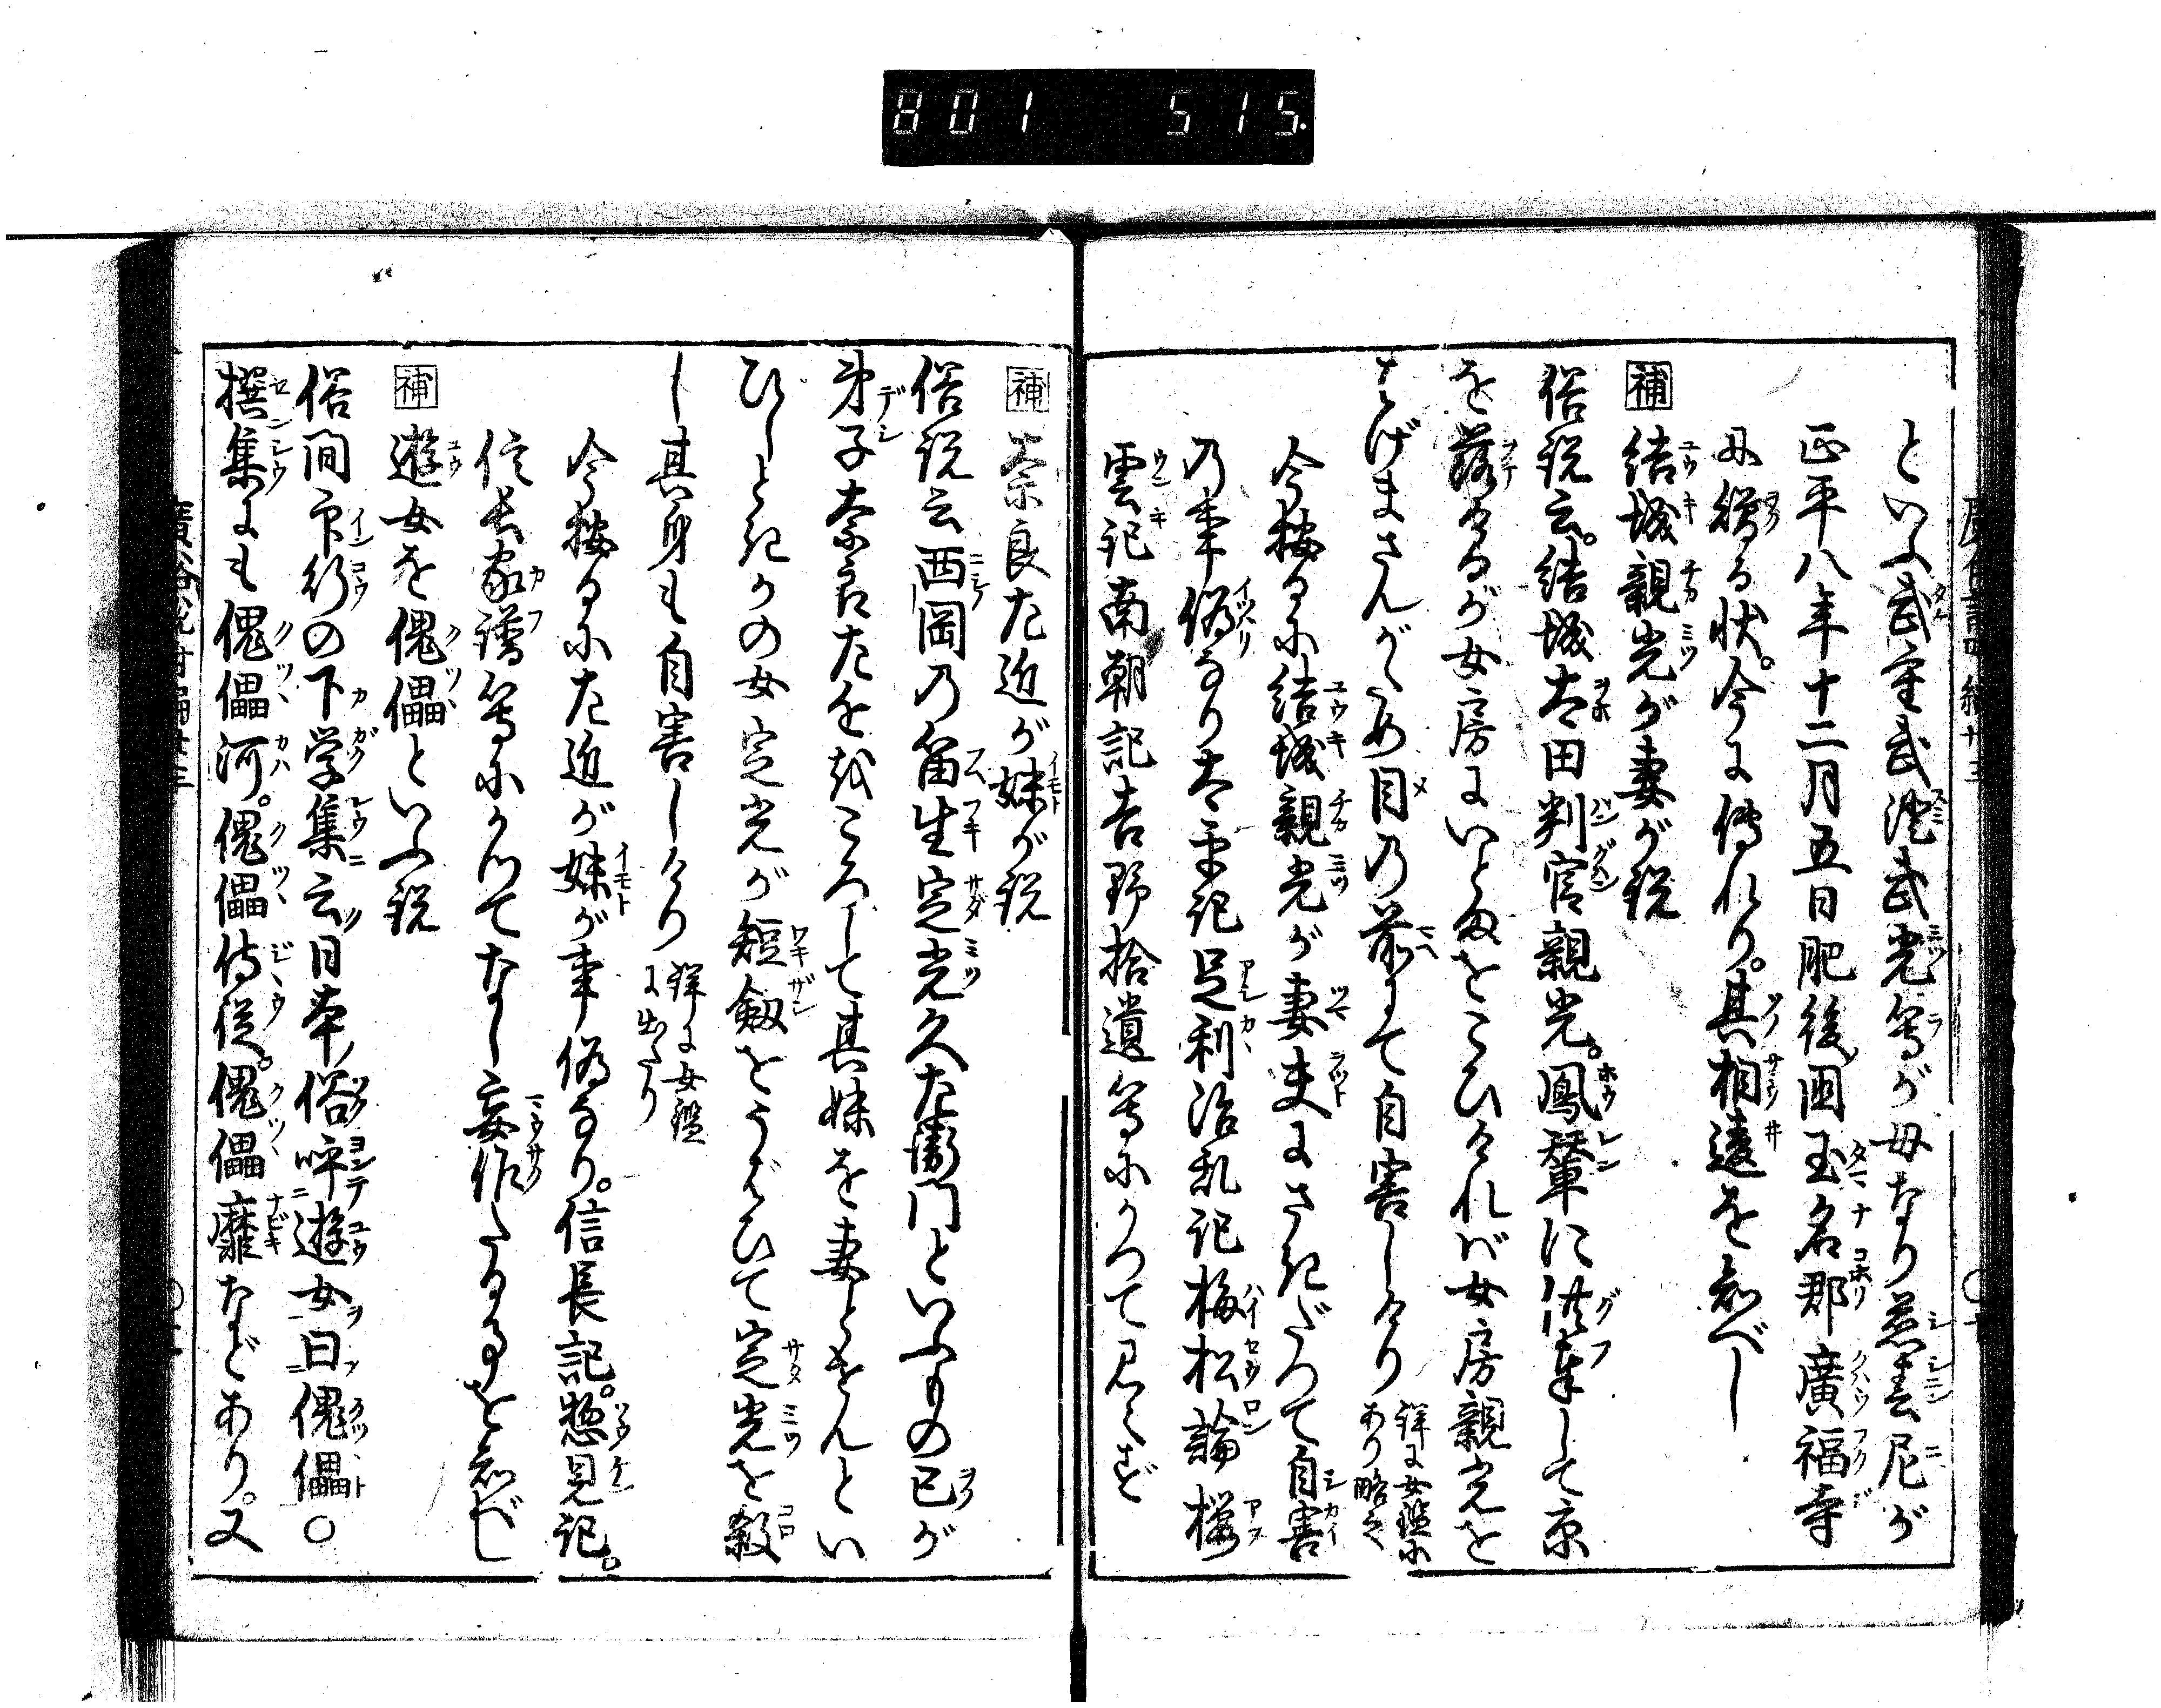 801 515.
といふ武重武澄武光等が母なり慈春尼が
正平八年十二月五日肥後国玉名郡廣福寺
に贈る状。今に傳れり。其相違を知べし
補 結城親光が妻が説
俗説云。結城太田判官親光。鳳輦に供奉して京
を落けるが女房にいとまをこひければ女房親光を
はげまさんがため目の前にて自害しけり 詳に女鑑に
あり略之
今按るに結城親光が妻夫にさきだつて自害
の事偽なり太平記足利治乱記梅松論桜
雲記南朝記吉野拾遺等にかつて見えず
補 奈良左近が妹が説
俗説云西岡の笛生定光久左衛門といふもの己が
弟子奈良左をころして其妹を妻とせんとい
ひしときかの女定光が短剱をうばひて定光を殺
し其身も自害しけり 詳に女鑑
に出たり
今按るに左近が妹が事偽なり。信長記。惣見記。
信長家譜等にかつてなし妄作たる事を知べし
補 遊女を傀儡といふ説
俗間印行の下学集云日本俗呼遊女曰傀儡○
撰集にも傀儡河。傀儡侍従。傀儡靡などあり。又